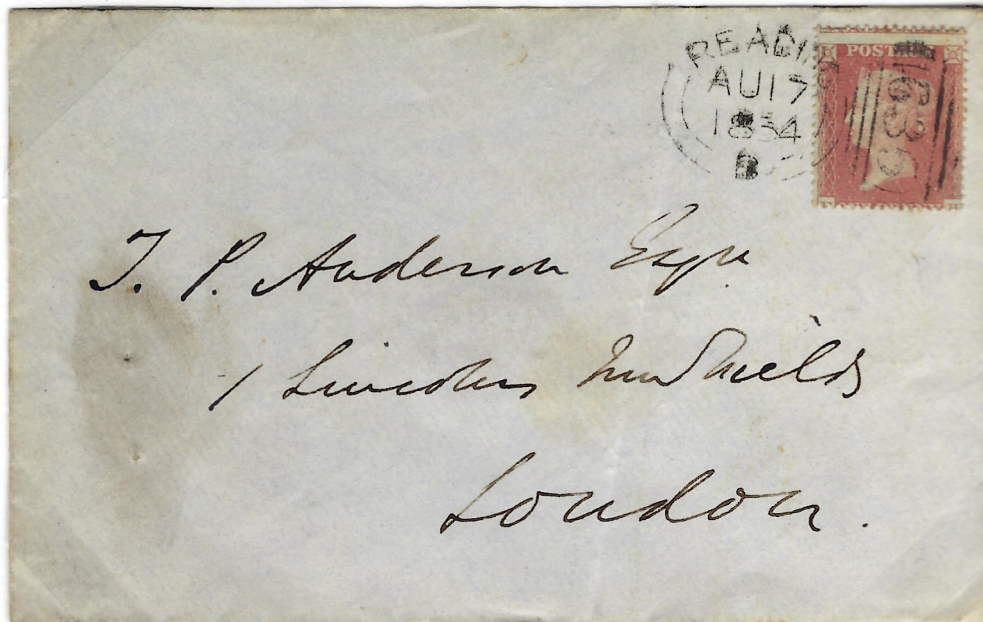 READING
AU 17
1854
B
POSTAGE
T. P. Anderson Esqr
1 Lincolns Inn Fields
London.